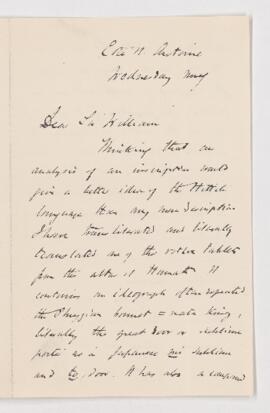 Wednesday
Dear Sir William
Thinking that an
analysis of an inscription would
give a better idea of the Hittite
language than any mere description
I have transliterated and literally
translated one of the votive tablets
from the altar of Hamath. It
contains an ideograph often repeated
the Phrygian bonnet = mata king,
literally the great door or sublime
porte as in Japanese mi sublime
and to, door. It has also a compound